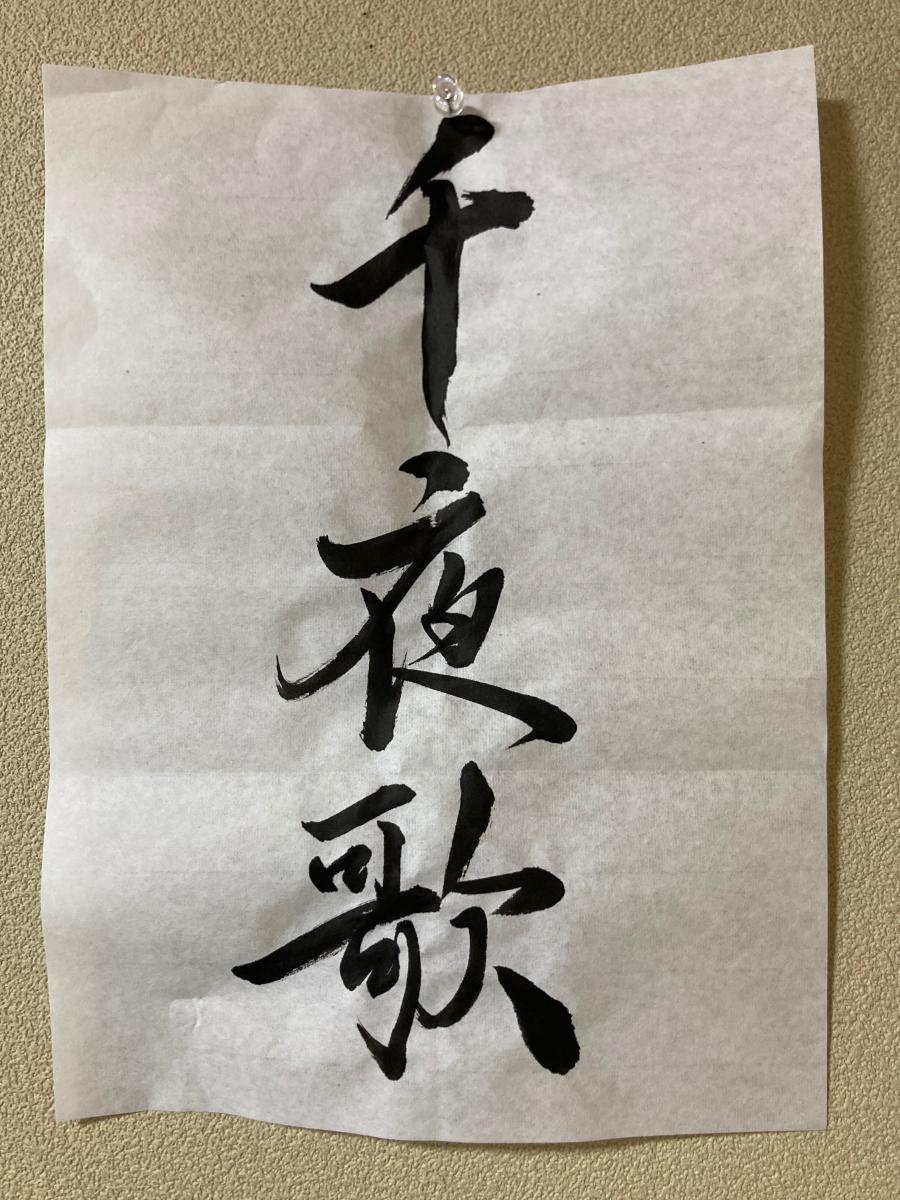 千夜歌